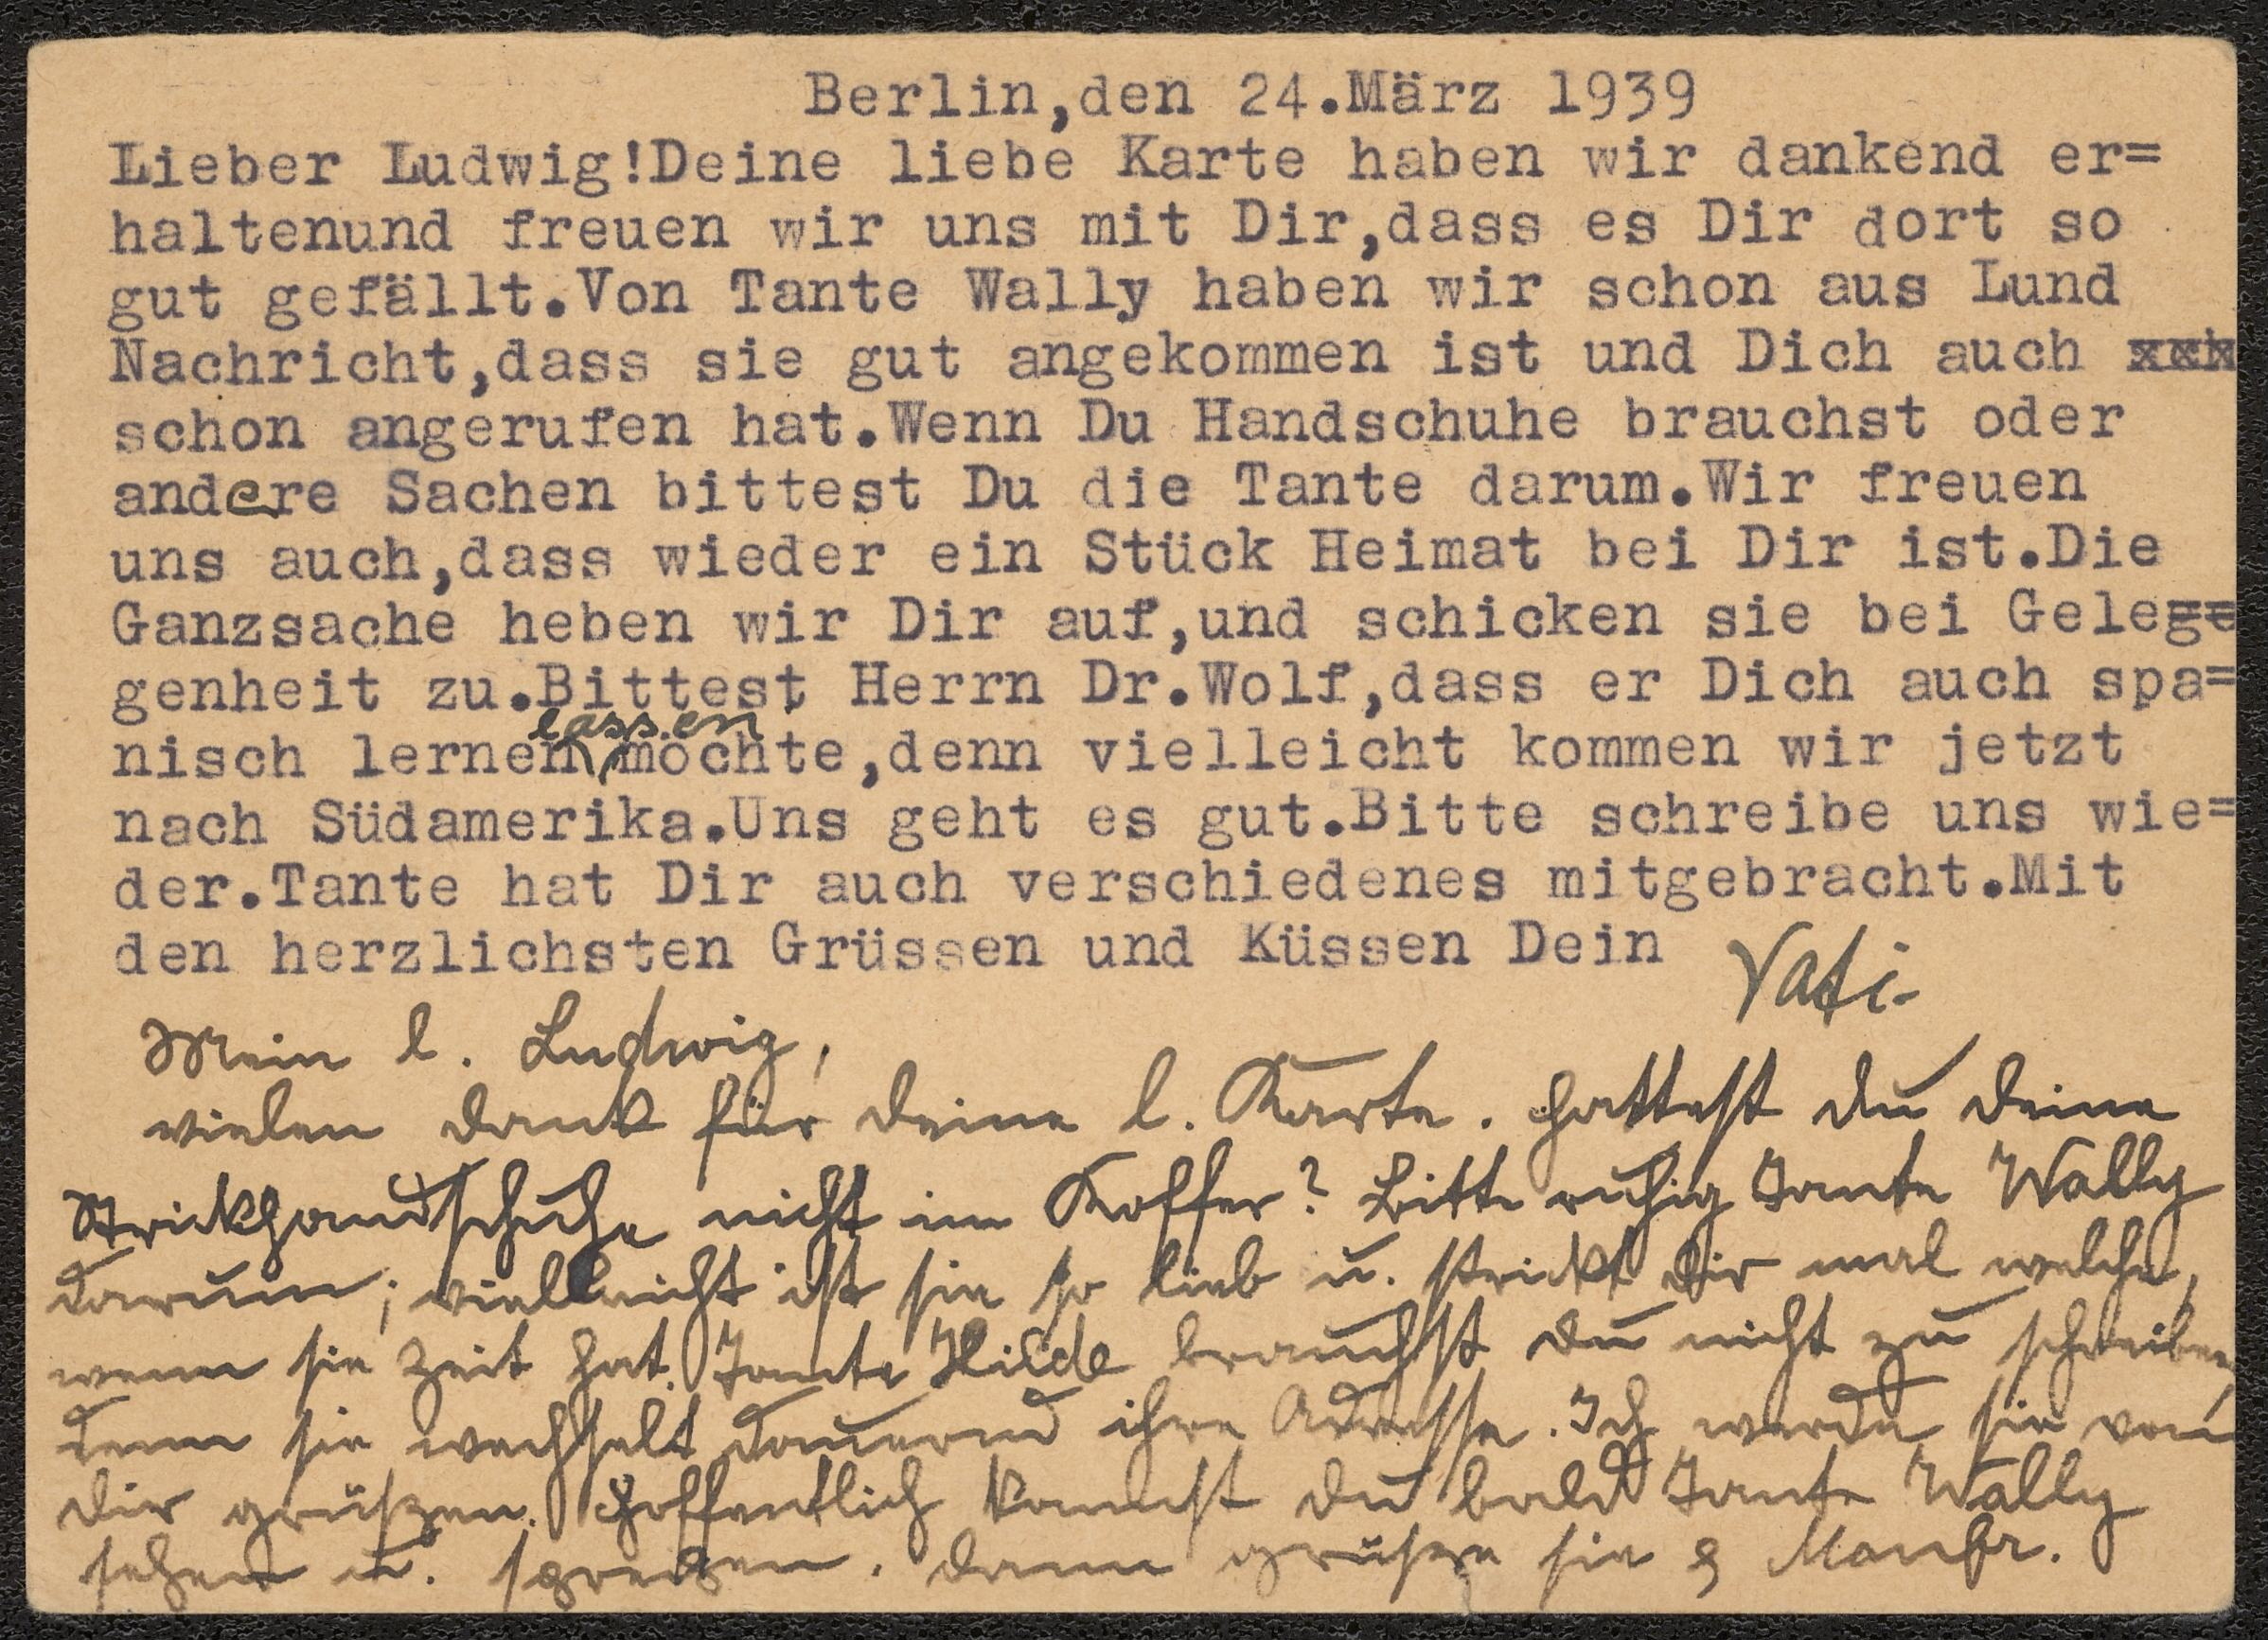 Berlin,den 24.März 1939
Lieber Ludwig!Deine liebe Karte haben wir dankend er=
haltenund freuen wir uns mit Dir,dass es Dir dort so
gut gefällt.Von Tante Wally haben wir schon aus Lund
Nachricht,dass sie gut angekommen ist und Dich auch
schon angerufen hat.Wenn Du Handschuhe brauchst oder
andere Sachen bittest Du die Tante darum.Wir freuen
uns auch,dass wieder ein Stück Heimat bei Dir ist.Die
Ganzsache heben wir Dir auf,und schicken sie bei Gele
genheit zu.Bittest Herrn Dr.Wolf,dass er Dich auch spa=
nisch lernen lassen möchte,denn vielleicht kommen wir jetzt
nach Südamerika.Uns geht es gut.Bitte schreibe uns wie=
der.Tante hat Dir auch verschiedenes mitgebracht.Mit
den herzlichsten Grüssen und Küssen Dein Vati.
Mein l. Ludwig,
vielen Dank für Deine l. Karte. Hattest Du Deine
Strickhandschuhe nicht im Koffer? Bitte ruhig Tante Wally
darum; vielleicht ist sie so lieb u. strickt Dir mal welche,
wenn sie Zeit hat. Tante Hilde brauchst Du nicht zu schreiben,
denn sie wechselt dauernd ihre Adresse. Ich werde sie von
Dir grüßen. Hoffentlich kannst Du bald Tante Wally
sehen u. sprechen. Dann grüße sie & Manfr.